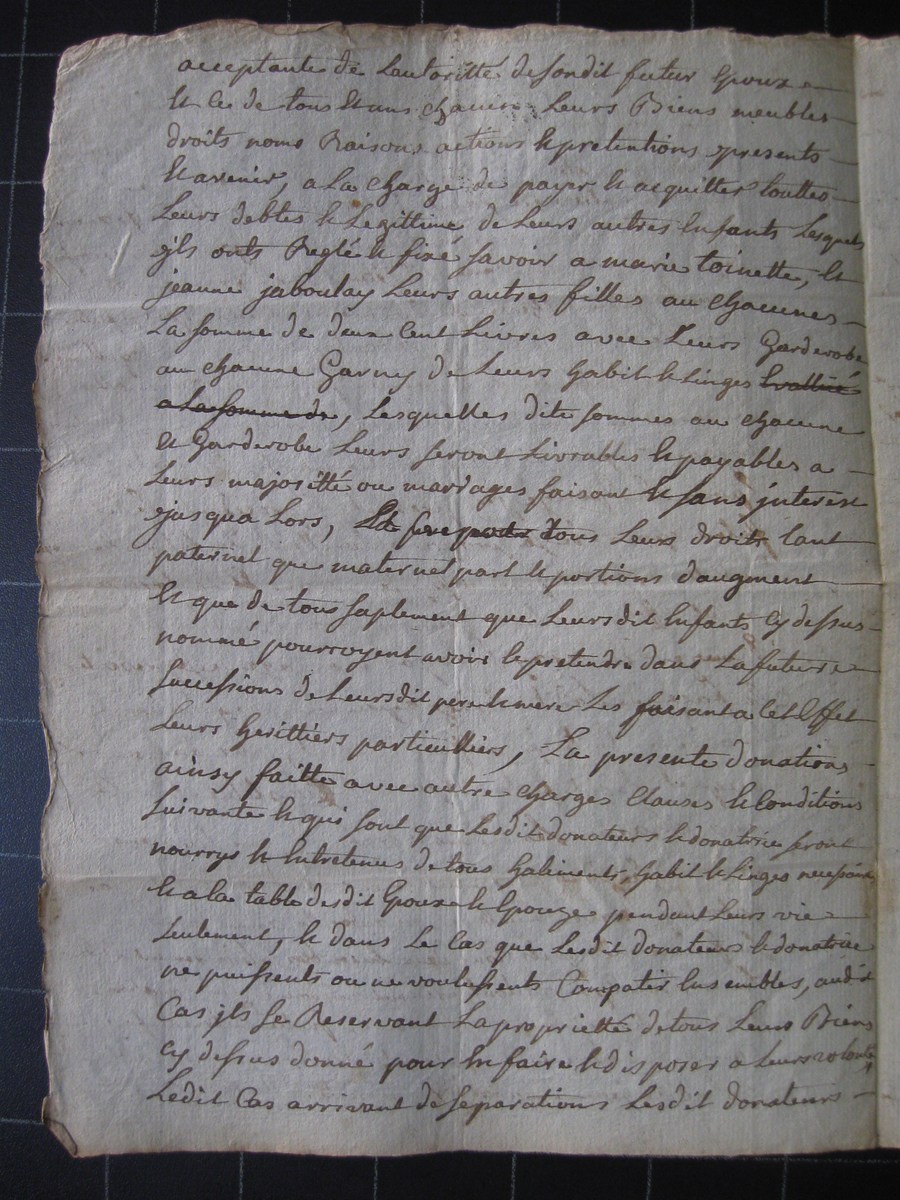 acceptante de Lautoritté desondit futur Epoux
Et ce de tous Et uns chacuns Leurs Biens meubles
droits noms Raisons actions & pretentions presents
& avenir, a La charge de payer & acquitter touttes
Leurs debtes & Legittime de Leurs autres Enfants Lesquels
jls onts Reglé & fixé savoir a marie toinette, et
jeanne jaboulay Leurs autres filles au chacunes
La somme de deux Cent Livres avec Leurs Garderobe
au chacune Garny de Leurs habit & Linges Evallüé
a La somme de, Lesquelles dite sommes au chacune
et Garderobe Leurs seront Livrables & payables a
Leurs majoritté ou mariages faisant & sans jnterest
jusqua Lors, tous Leurs droits tant
paternel que maternel part & portions daugment
Et que de tous suplement que Leursdit Enfants Cy dessus
nommé pourroyent avoir & pretendre dans La future
successions de Leursdit pere & mere Les faisant a Cet Effet
Leurs herittiers particulliers, La presente donations
ainsy faitte avec autre charges Clauses & Conditions
suivante & qui sont que Lesdit donateurs & donatrice seront
nourrys & Entretenus de tous habiments, habit & Linges necessaires
& a la table desdit Epoux & Epouze pendant Leurs vie
seulement, & dans Le Cas que Lesdit donateurs & donatrice
ne puissents ou ne voulussents Compatir Ensembles, audit
Cas jls se Reservant La proprietté de tous Leurs Biens
Cy dessus donné pour En faire & disposer a Leurs volonté
Ledit Cas arrivant de separations Lesdit donateurs